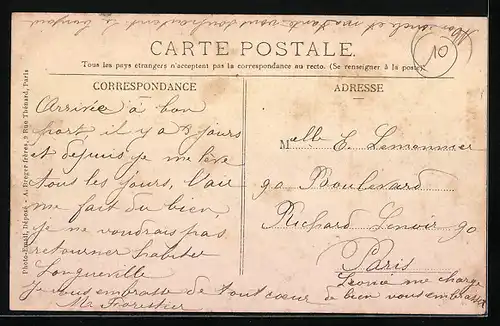 Mon oncle et ma tante vous souhaitent le bonjour
CARTE POSTALE.
Tous les pays étrangers n'acceptent pas la correspondance au recto. (Se renseigner à la poste)
10
CORRESPONDANCE
Arrivée à bon
port, il y a 8 jours
et depuis je me lève
tous les jours, l'air
me fait du bien,
je ne voudrais pas
retourner habiter
Longueville
Je vous embrasse de tout cœur
M. Forestier
ADRESSE
Melle E. Lemonnier
90 Boulevard
Richard Lenoir 90
Paris
Leonie me charge
de bien vous embrasser
Photo-Email, Déposé - A. Breger frères, 9 Rue Thénard, Paris